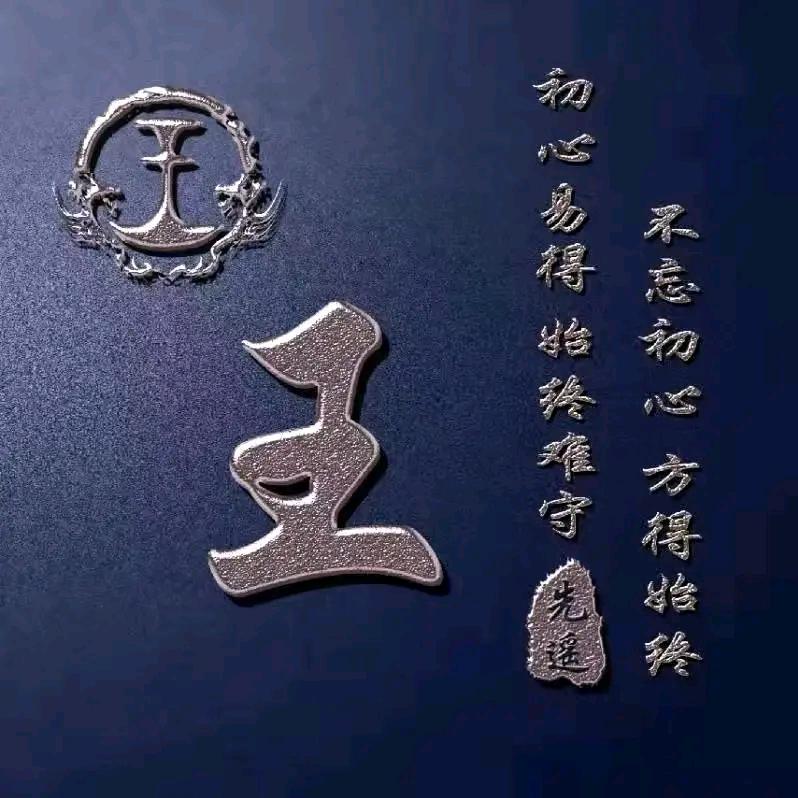 王
王
不忘初心 方得始终
初心易得 始终难守
先遥